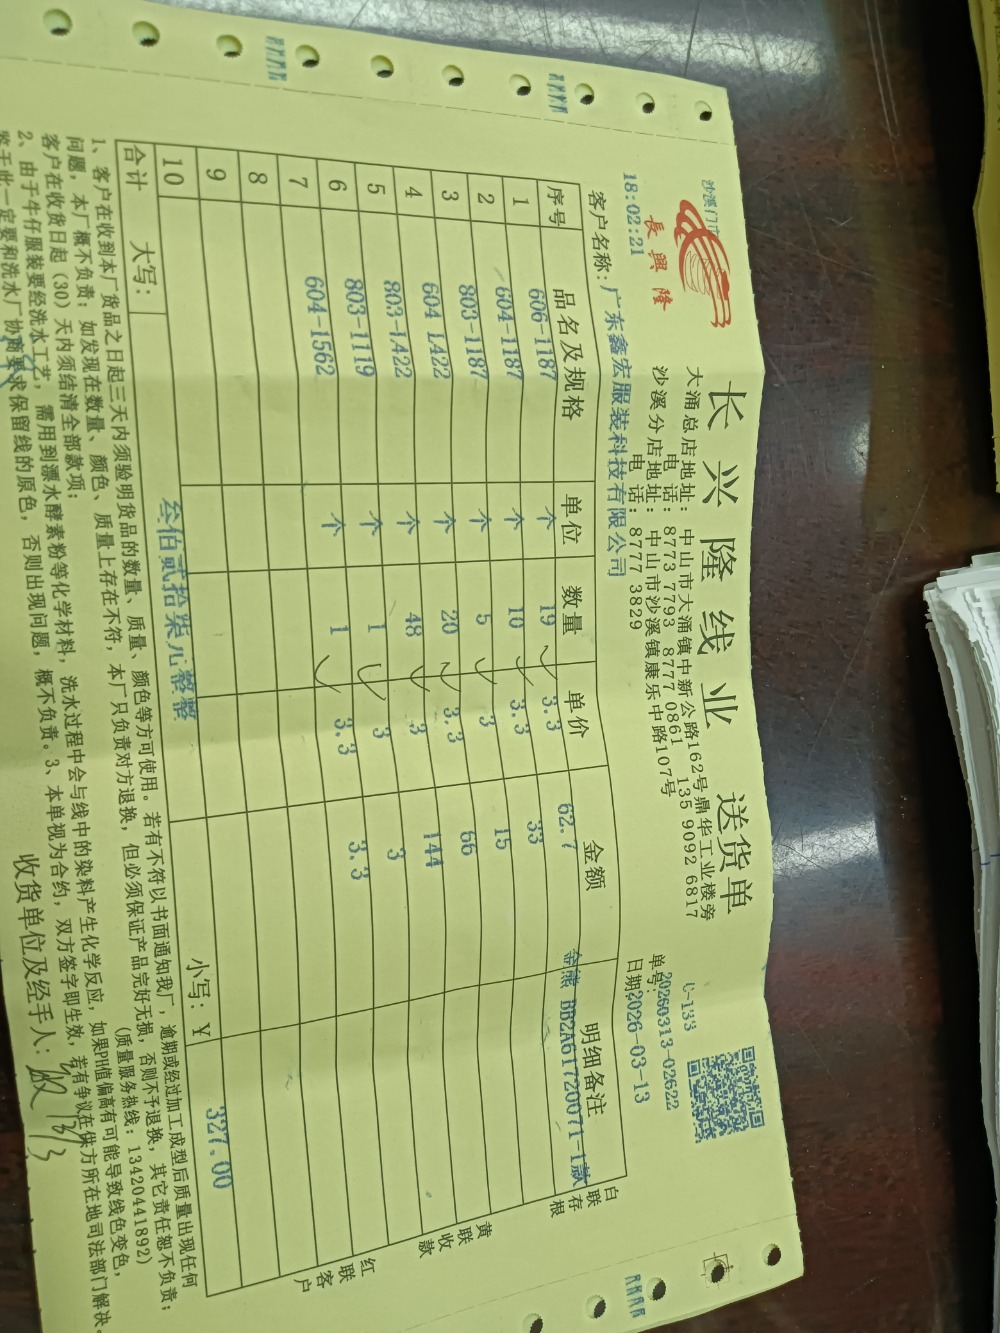 沙溪门市
長興隆
长兴隆线业 送货单
大涌总店地址：中山市大涌镇中新公路162号鼎华工业楼旁
电 话：8773 7793 8777 0861 135 9092 6817
沙溪分店地址：中山市沙溪镇康乐中路107号
电 话：8777 3829
C-133
单号：20260313-02622
18:02:21
日期：2026-03-13
客户名称：广东鑫宏服装科技有限公司
序号 品名及规格 单位 数量 单价 金额 明细备注
1 606-1187 个 19 3.3 62.7 金熊 BB2A61720071-1款
2 604-1187 个 10 3.3 33
3 803-1187 个 5 3 15
4 604-1422 个 20 3.3 66
5 803-1422 个 48 3 144
6 803-1119 个 1 3 3
7 604-1562 个 1 3.3 3.3
8
9
10
合计 大写： 叁佰贰拾柒元整整 小写：￥ 327.00
白联存根
黄联收款
红联客户
1、客户在收到本厂货品之日起三天内须验明货品的数量、质量、颜色等方可使用。若有不符以书面通知我厂，逾期或经过加工成型后质量出现任何
问题，本厂概不负责；如发现在数量、颜色、质量上存在不符，本厂只负责对方退换，但必须保证产品完好无损，否则不予退换，其它责任恕不负责；
客户在收货日起（30）天内须结清全部款项； （质量服务热线：13420441892）
2、由于牛仔服装要经洗水工艺，需用到漂水酵素粉等化学材料，洗水过程中会与线中的染料产生化学反应，如果PH值偏高有可能导致线色变色，
鉴于此一定要和洗水厂协商要求保留线的原色，否则出现问题，概不负责。3、本单视为合约，双方签字即生效，若有争议在供方所在地司法部门解决。
收货单位及经手人：